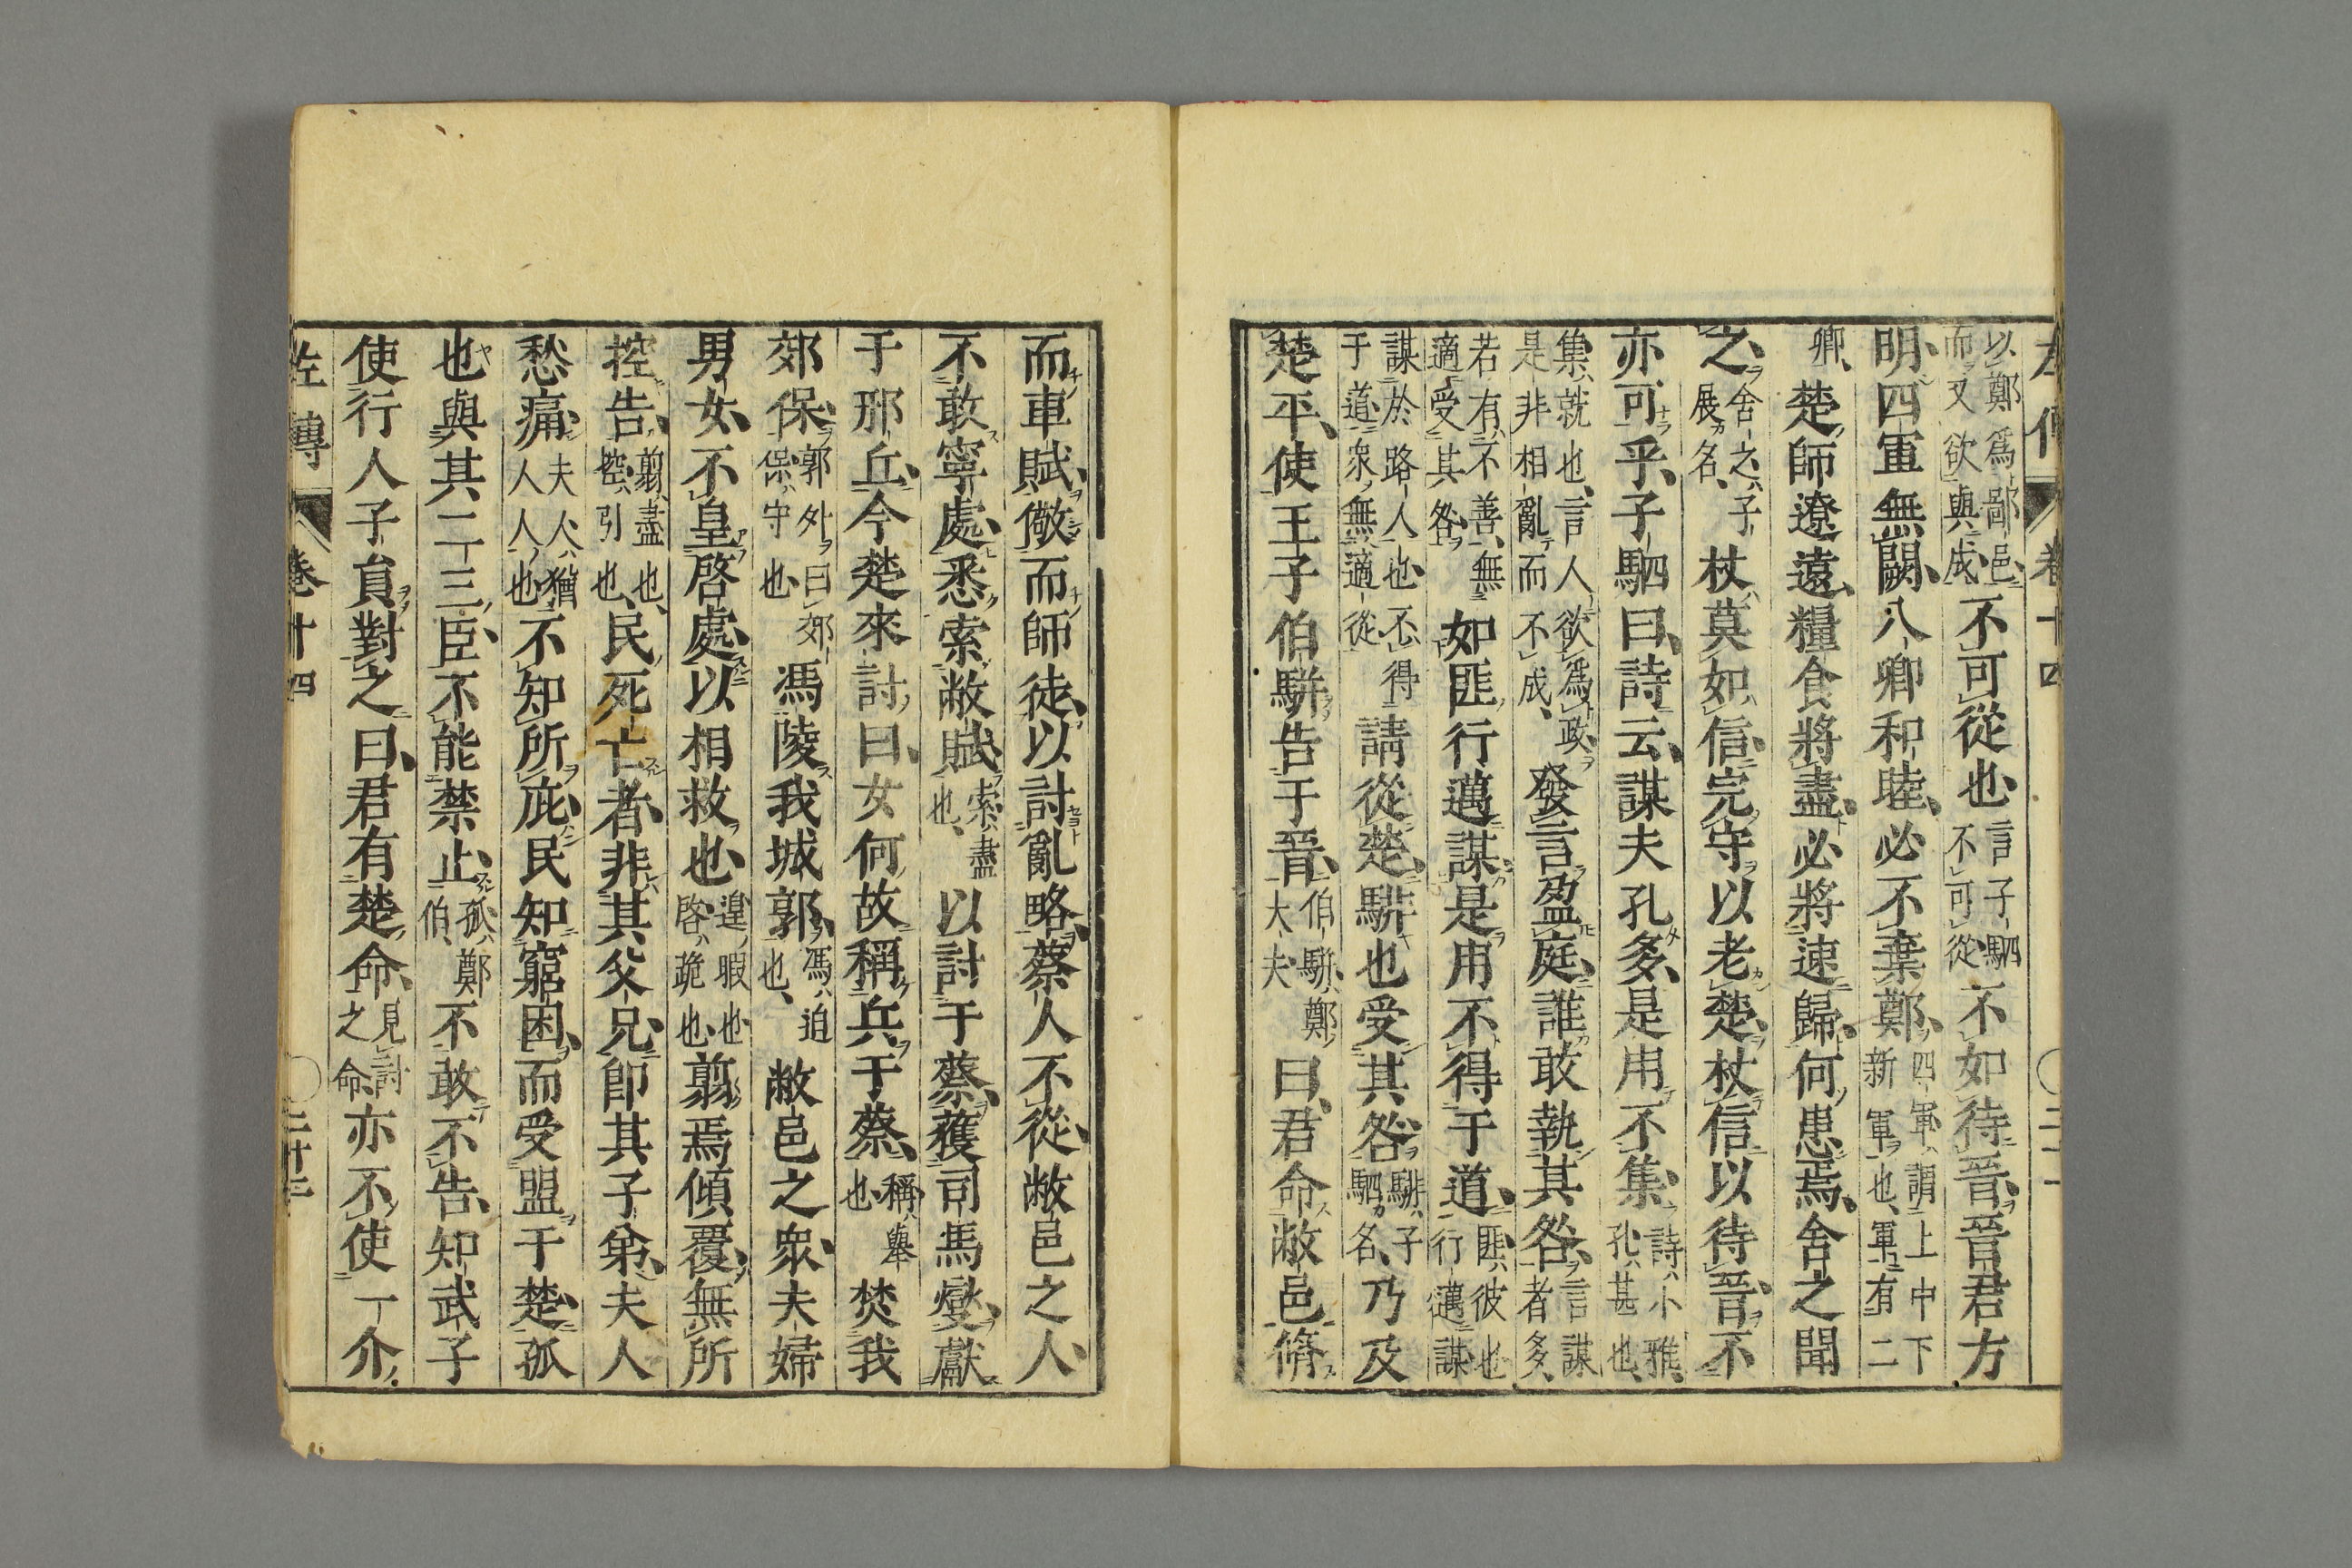 左傳 卷十四
以鄭爲鄙邑、而又欲與成、不可從也言子駟不可從不如待晉、晉君方
明、四軍無闕、八卿和睦、必不棄鄭、四軍、謂上中下新軍也、軍有二
卿、楚師遼遠、糧食將盡、必將速歸、何患焉、舍之聞
之、舍之、子展名、杖莫如信、完守以老楚、杖信以待晉、不
亦可乎、子駟曰、詩云、謀夫孔多、是用不集、詩小雅、孔甚也、
集就也、言人欲爲政、是非相亂而不成、發言盈庭、誰敢執其咎、言謀者多、
若有不善、無適受其咎、如匪行邁謀、是用不得于道、匪彼也行邁謀
謀於路人也、不得于道、衆無適從請從楚、騑也受其咎、騑子駟名、乃及
楚平、使王子伯駢告于晉、伯駢、鄭大夫、曰、君命敝邑、脩
而車賦、儆而師徒、以討亂略、蔡人不從、敝邑之人、
不敢寧處、悉索敝賦、索盡也、以討于蔡、獲司馬燮、獻
于邢丘、今楚來討曰、女何故稱兵于蔡、稱舉也焚我
郊保、郭外曰郊保守也馮陵我城郭、馮迫也、敝邑之衆、夫婦
男女、不皇啓處、以相救也、遑暇也啓跪也翦焉傾覆、無所
控告、翦盡也、控引也、民死亡者、非其父兄、即其子弟、夫人
愁痛、夫人猶人人也不知所庇、民知窮困、而受盟于楚、孤
也與其二三臣、不能禁止、孤鄭伯、不敢不告、知武子
使行人子員對之曰、君有楚命、見討之命亦不使一介
左傳 卷十四 二十二